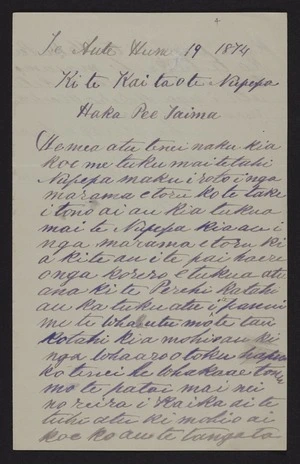 4
Te Aute Hune 19 1874
Ki te Kai ta o te Nupepa
Haka Pee Taima
Homea atu tenei naku kia
koe me tuku mai tetahi
Nupepa maku i roto i nga
marama e toru ko te take
i tono ai au kia tukua
mai te Nupepa kia au i
nga marama e toru ki
a kite au i te pai
onga korero e tukua atu
ana ki te Perehi katahi
au ka tuku atu i
me te mo te tau
kotahi kia mohio au ki
nga whaaro o toku hapu
ko tenei
mo te patai mai nei
no reira i Kaika ai te
tuhi atu ki mohio ai
koe ko au te tangata